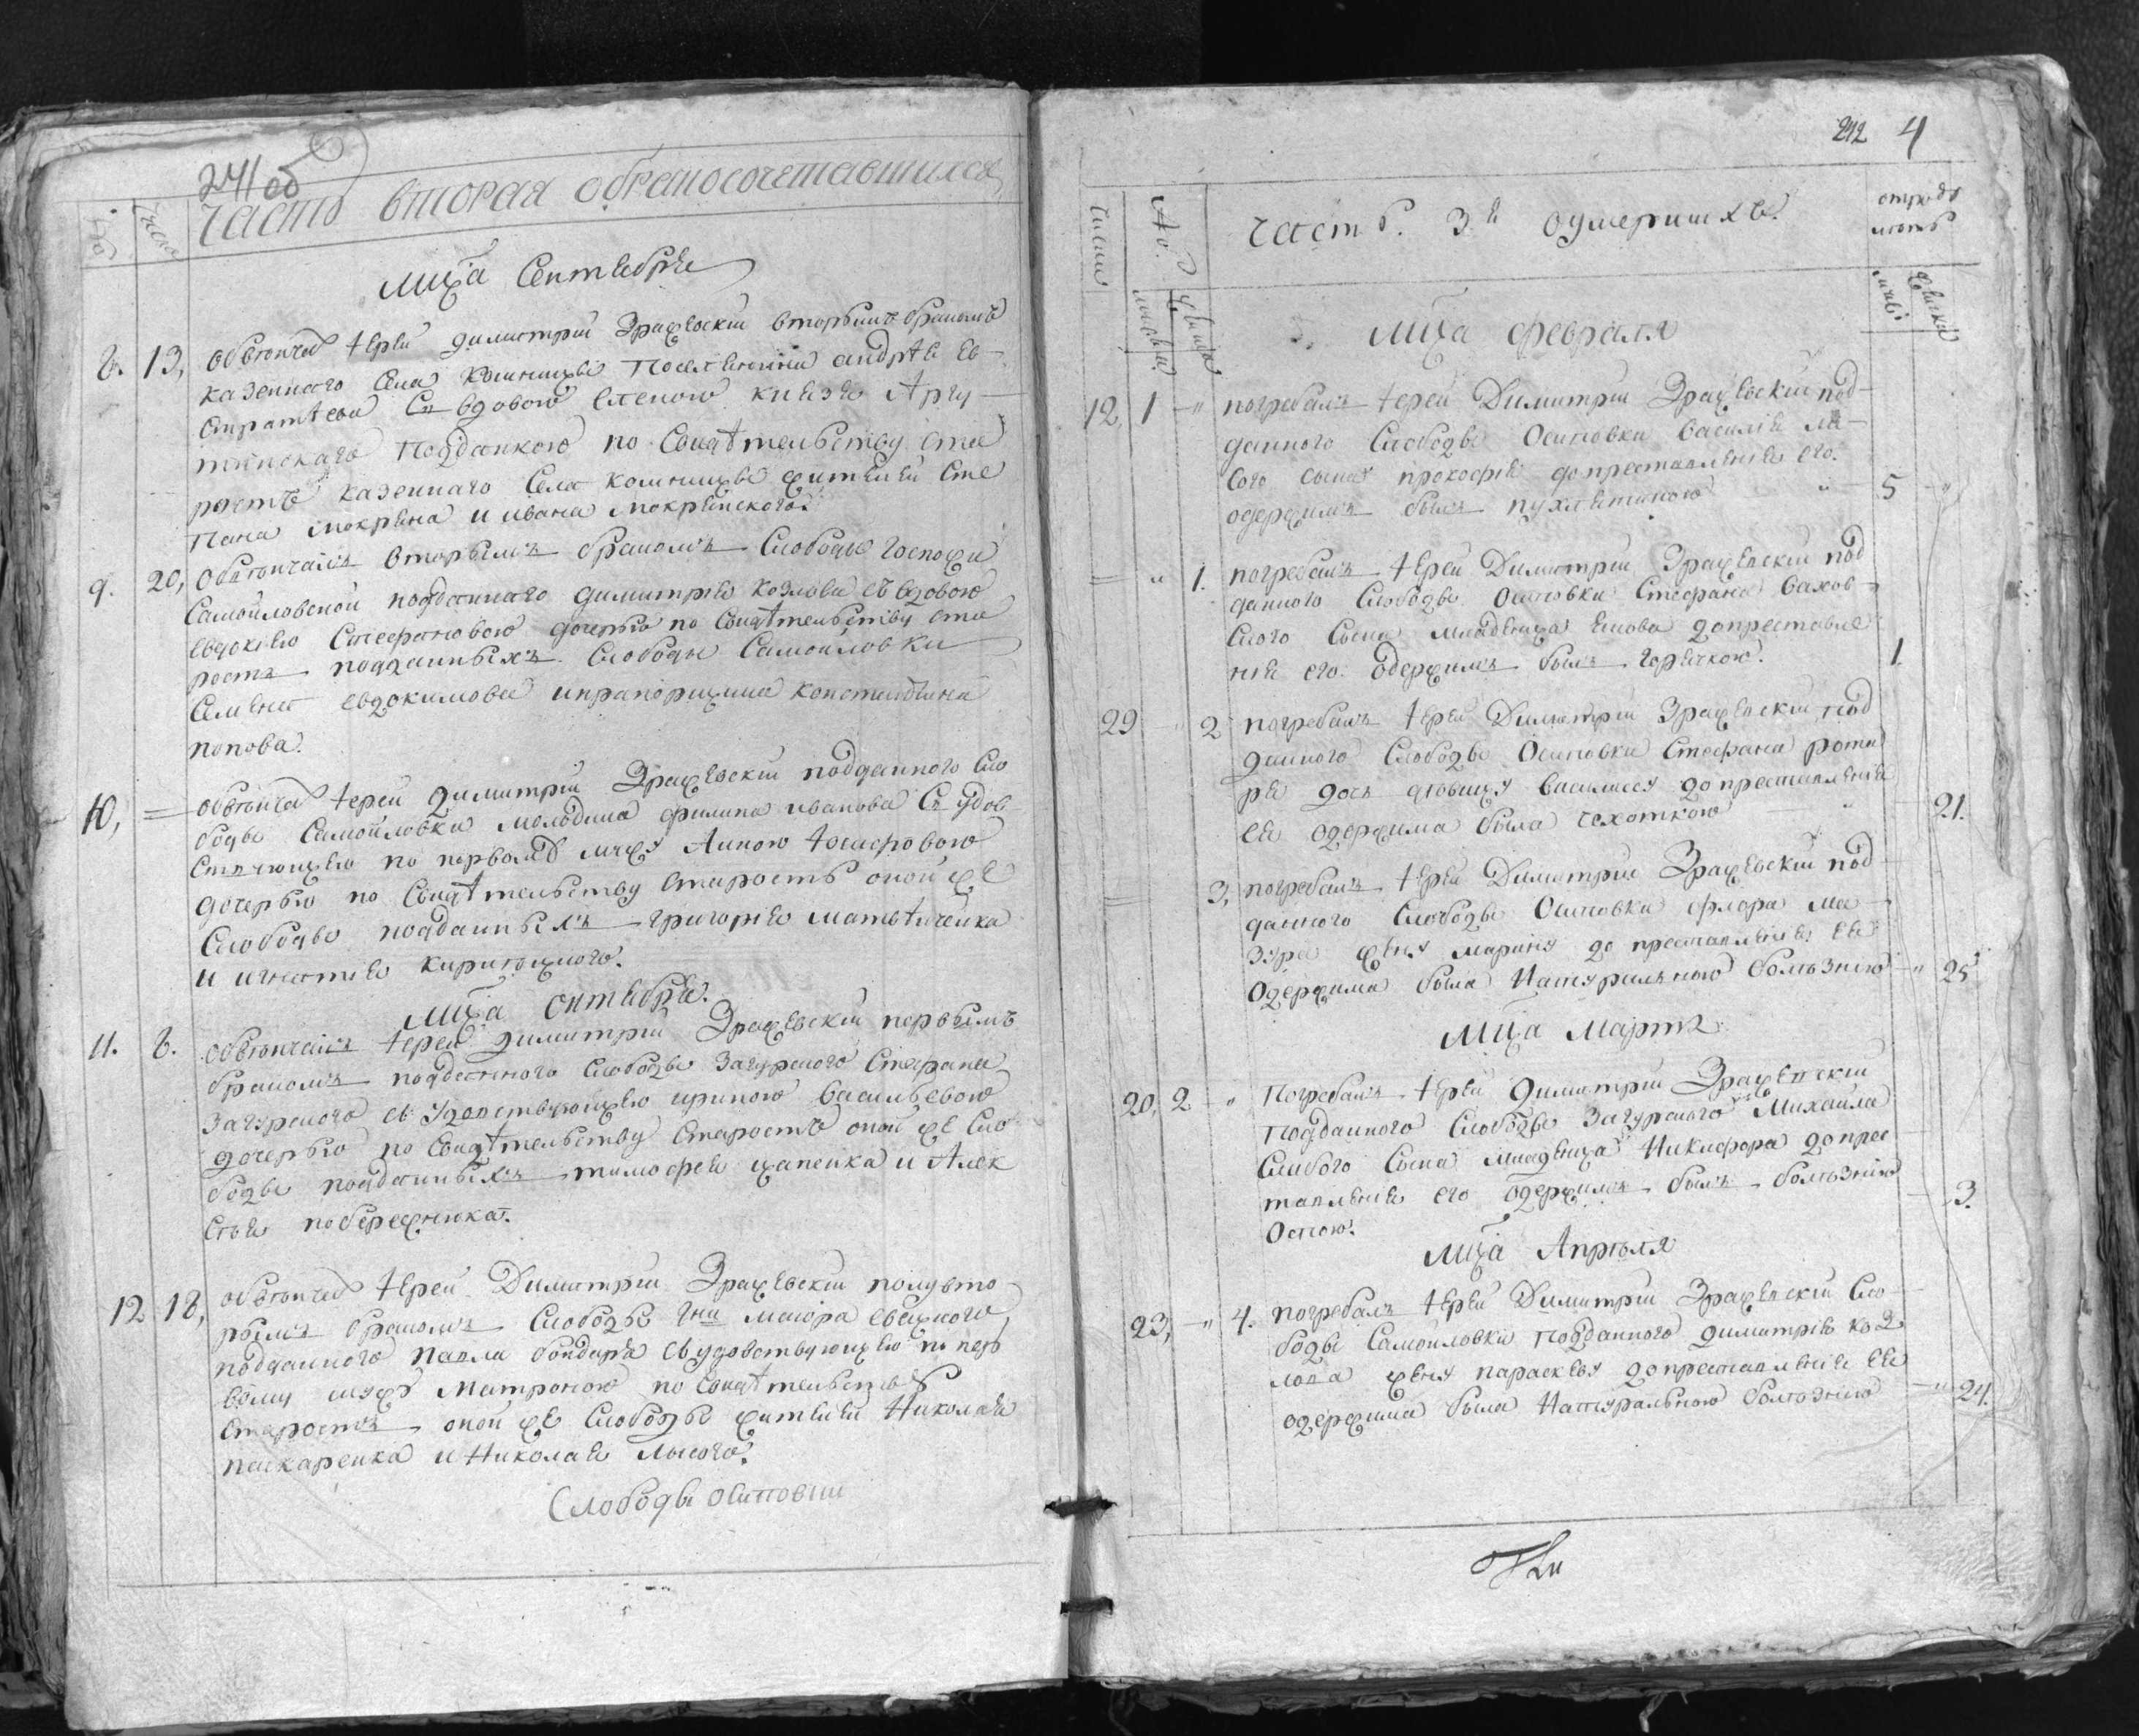 241об
часть вторая обракосочетавшихся
№
число
мца Сентября
8. 13, обвенчал іерей димитрій Эражевскій вторымъ бракомъ
казеннаго села Комишухи поселянина андрея ев-
стратіева съ вдовою еленою князя Аргу-
тинскаго подданкою по свидѣтельству ста
ростъ казеннаго села комишухи жителей сте
пана мокрена и ивана мокренского.
9. 20, обвѣнчалъ вторымъ бракомъ слободы госпожи
Самойловской подданнаго димитрія козлова съ вдовою
евдокіею стефановою дочерью по свидѣтельству ста
ростъ подданныхъ слободы Самойловки
семена евдокимова и прапорщика константина
попова.
10, = обвѣнчал іерей димитрій Эражевскій подданного сло
боды Самойловки молодика филипа иванова съ удов
ствующею по первомъ мужу Анною іосифовою
дочерью по свидѣтельству старостъ оной же
слободы подданныхъ григорія матвѣиченка
и игнатія
мца октября.
11. 8. обвѣнчалъ іерей димитрій Эражевскій первымъ
бракомъ подданного слободы Загурского Стефана
Загурского съ удовствующею ириною васильевою
дочерью по свидѣтельству старостъ оной же сло
боды подданныхъ тимофея цапенка и Алек
сѣя побережника.
12 18, обвѣнчал іерей Димитрій Эражевскій полувто
рымъ бракомъ слободы гна маіора
подданного павла бондаря съ удовствующею по пер
вому мужѣ матроною по свидѣтельствѣ
старостъ оной же слободы жителей Николая
паскаренка и Николая лысого.
Слободы осиповки
242 4
числа
№
мужеска
женска
часть. 3я оумершихъ.
отроду
лѣтъ
мужс.
женска
мца февраля
12, 1 " погребалъ іерей Димитрій Эражевскій под-
данного слободы Осиповки василія лы-
сого сына прокофія до преставленія его.
одержимъ былъ пухлятиною " 5 "
= " 1. погребалъ іерей Димитрій Эражевскій под
данного слободы Осиповки Стефана вахов-
ского сына младенца якова до преставле
нія его. одержимъ былъ горячкою. 1.
29 " 2 погребалъ іерей Димитрій Эражевскій под
данного слободы Осиповки Стефана рота
ря дочь дѣвицу василису до преставленія
ея одержима была чахоткою " 21.
= 3, погребалъ іерей Димитрій Эражевскій под
данного слободы Осиповки флора ма-
зура жену марину до преставленія ея
одержима была натуральною болѣзнію " 25
мца Марта
20, 2 " Погребалъ іерей димитрій Эражевскій
подданного слободы Загурского Михаила
слабого сына младенца Никифора до прес
тавленія его одержимъ былъ болѣзнію 3.
оспою.
мца Апрѣля
23, " 4. погребалъ іерей Димитрій Эражевскій сло-
боды Самойловки подданного димитрія коз
лова жену параскеву до преставленія ея
одержима была натуральною болѣзнію " 24.